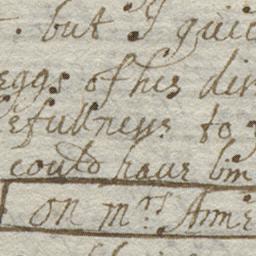 but I quic
eggs of his div
efullness to
could haue bin
on mrs Anne